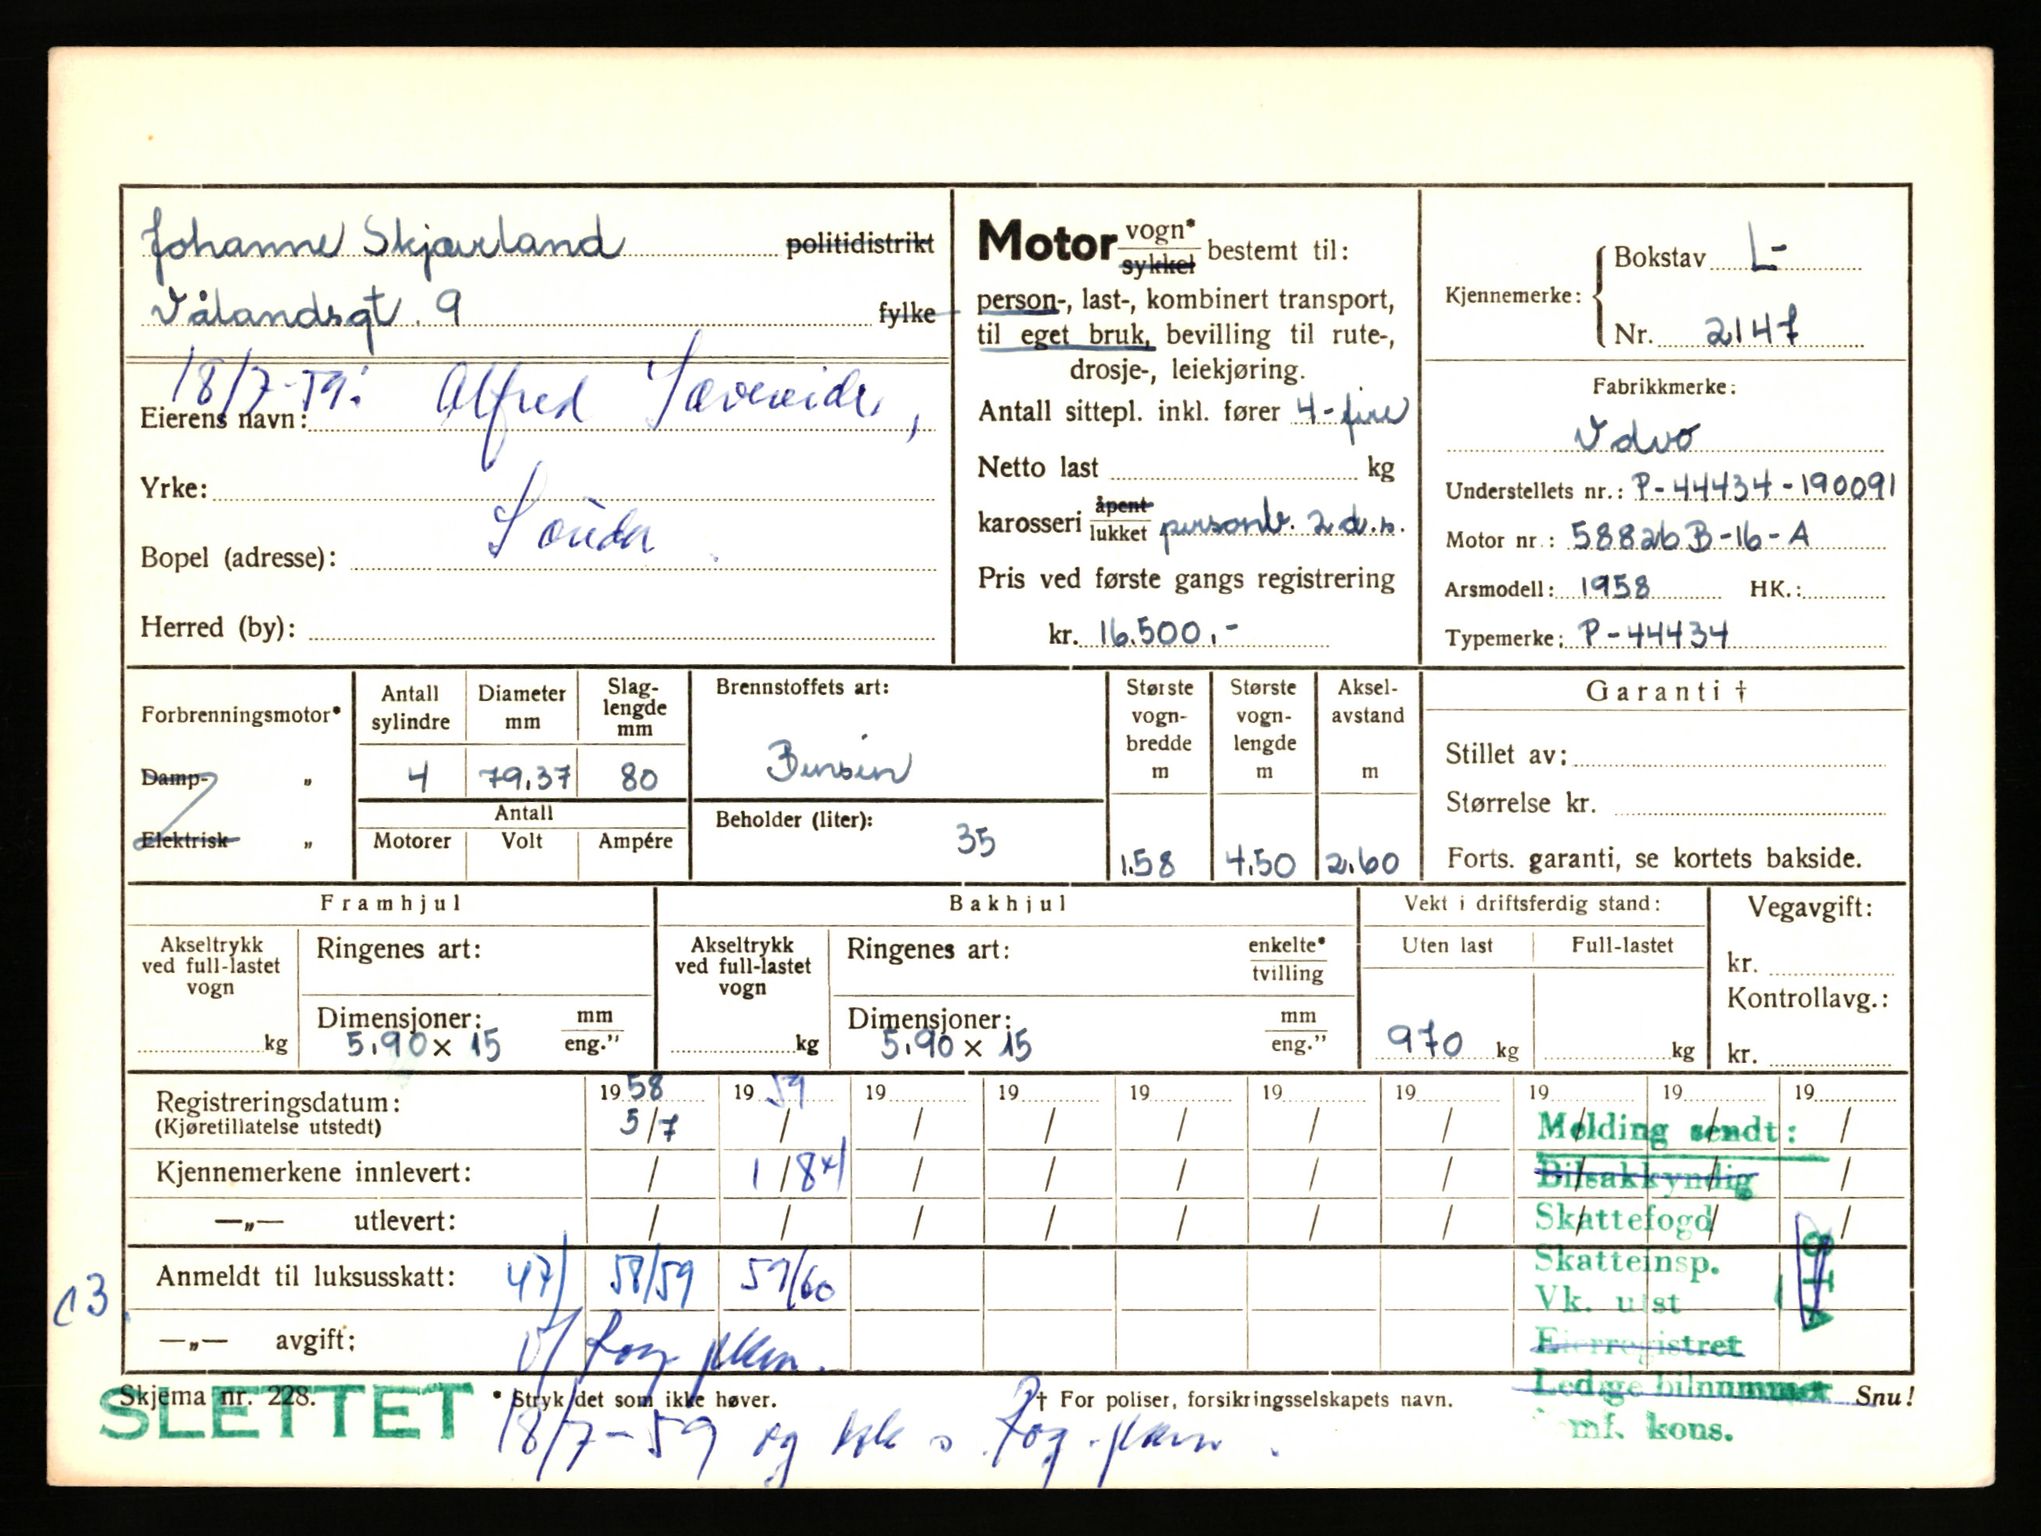 Johanne Skjærland politidistrikt
Vålandsgt. 9 fylke
18/7-59: Alfred
Eierens navn:
Yrke:
Sauda
Bopel (adresse):
Herred (by):
Motor vogn* sykkel bestemt til:
person-, last-, kombinert transport,
til eget bruk, bevilling til rute-,
drosje-, leiekjøring.
Antall sittepl. inkl. fører 4-fire
Netto last kg
karosseri åpent lukket personb. 2 d.s.
Pris ved første gangs registrering
kr. 16.500,-
Kjennemerke: Bokstav L-
Nr. 2147
Fabrikkmerke:
Volvo
Understellets nr.: P-44434-190091
Motor nr.: 58826 B-16-A
Arsmodell: 1958 HK.:
Typemerke: P-44434
Forbrenningsmotor*
Damp- "
Elektrisk "
Antall sylindre
Diameter mm
Slag-lengde mm
4 79,37 80
Antall
Motorer Volt Ampére
Brennstoffets art:
Bensin
Beholder (liter):
35
Største vogn-bredde m
1.58
Største vogn-lengde m
4.50
Aksel-avstand m
2.60
Garanti †
Stillet av:
Størrelse kr.
Forts. garanti, se kortets bakside.
Framhjul
Akseltrykk ved full-lastet vogn
kg
Ringenes art:
Dimensjoner: mm eng."
5.90 x 15
Bakhjul
Akseltrykk ved full-lastet vogn
kg
Ringenes art: enkelte* tvilling
Dimensjoner: mm eng."
5.90 x 15
Vekt i driftsferdig stand:
Uten last Full-lastet
970 kg kg
Vegavgift:
kr.
Kontrollavg.:
kr.
Registreringsdatum: 1958 1959 19 19 19 19 19 19 19 19
(Kjøretillatelse utstedt) 5/7 / / / / / / / / /
Kjennemerkene innlevert: / 1/8 x) / / / / / / / /
—„— utlevert: / / / / / / / / / /
Anmeldt til luksusskatt: 47) 58/59 59/60
—„— avgift:
Melding sendt:
Bilsakkyndig
Skattefogd
Skatteinsp.
Vk. utst
Eierregistret
Ledige bilnummer
kons.
SLETTET
Skjema nr. 228. * Stryk det som ikke høver. † For poliser, forsikringsselskapets navn. Snu!
18/7-59 og